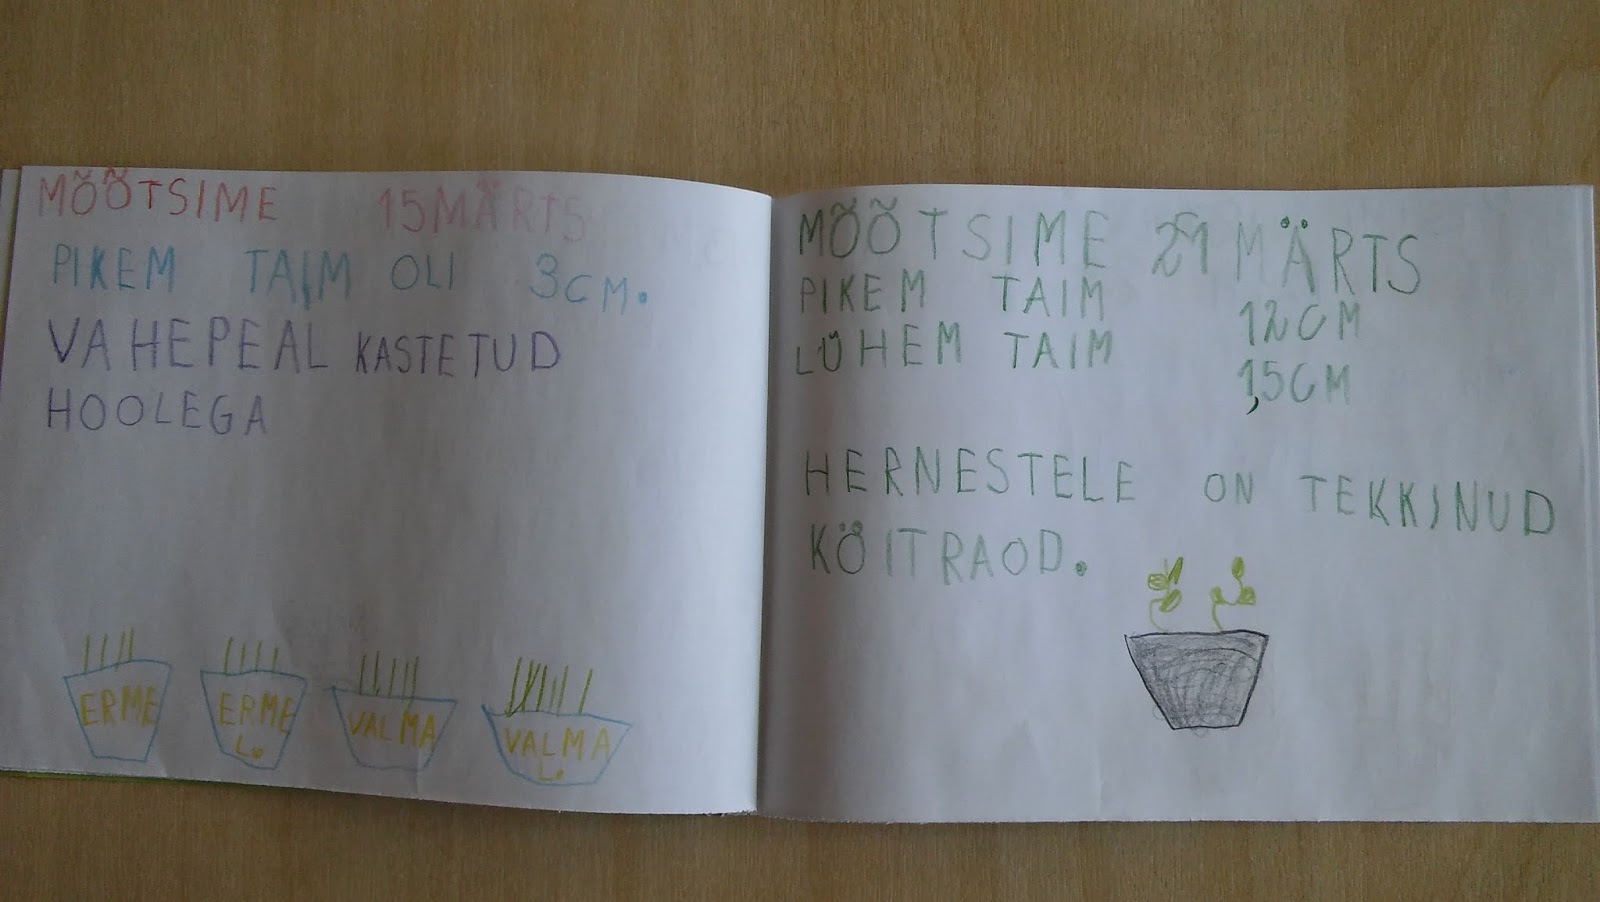 MÕÕTSIME 15 MÄRTS
PIKEM TAIM OLI 3CM.
VAHEPEAL KASTETUD
HOOLEGA
ERME
ERME
L.
VALMA
VALMA
L.
MÕÕTSIME MÄRTS
PIKEM TAIM 12CM
LÜHEM TAIM 1,5CM
HERNESTELE ON TEKKINUD
KÖITRAOD.